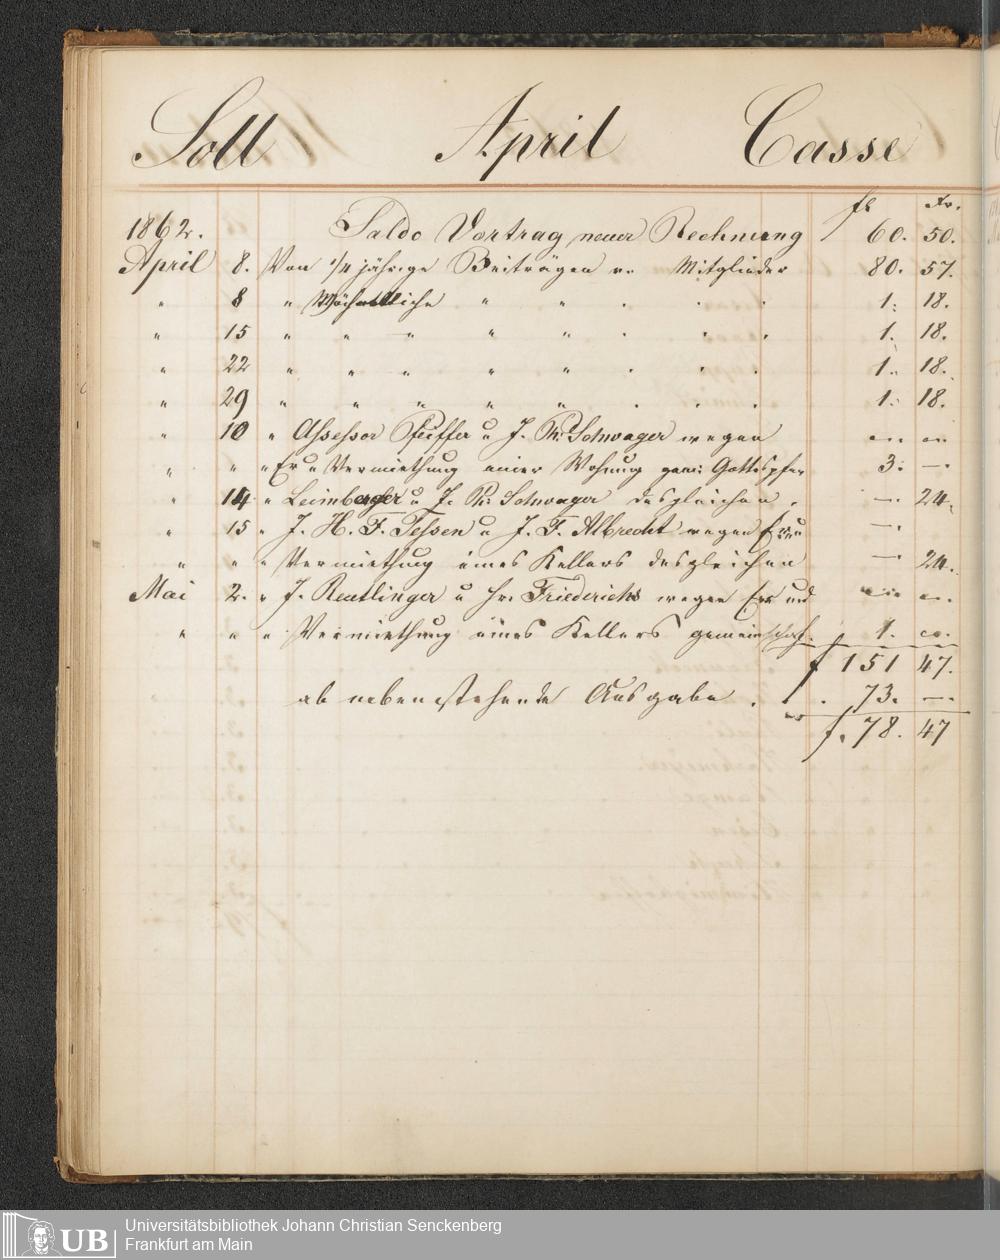 Soll April Casse
fl Kr.
1862. Saldo Vortrag neuer Rechnung 60. 50.
April 8. Von 1/4 jährige Beiträgen v. Mitglieder 80. 57.
" 8 " Wöchentliche " " . . . 1. 18.
" 15 " " " " " . . . 1. 18.
" 22 " " " " " . . . 1. 18.
" 29 " " " " " . . . 1. 18.
" 10 " Assessor Pfeiffer u J. Ph. Schwager wegen
" " " Er u Vermiethung einer Wohnung gem: Gottespfen 3. —.
" 14 " Leimberger u J. Ph. Schwager desgleichen —. 24.
" 15 " J. H. F. Tessen u J. F. Albrecht wegen Er u —.
" " " Vermiethung eines Kellers desgleichen —. 24.
Mai 2. " J. Reutlinger u Hr. Friederichs wegen Er und
" " " Vermiethung eines Kellers gemeinschaf. 1.
f 151 47.
ab nebenstehende Ausgabe . . . 73. —.
f. 78. 47
UB
Universitätsbibliothek Johann Christian Senckenberg
Frankfurt am Main